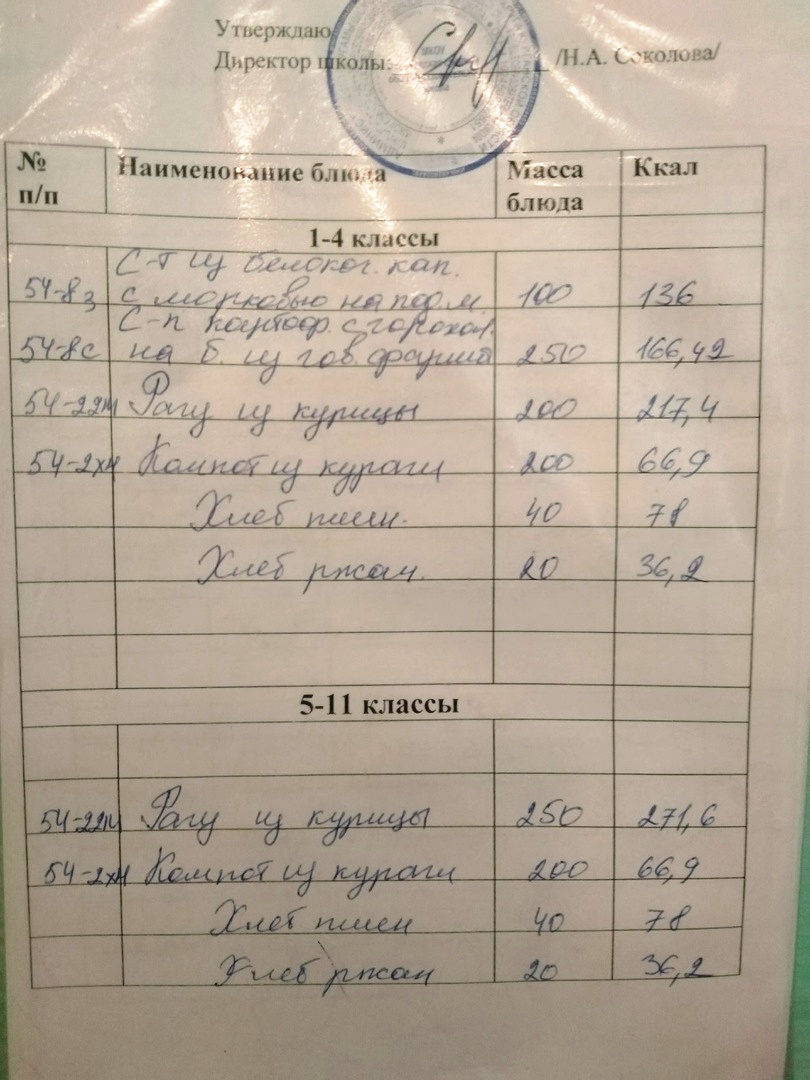 Утверждаю
Директор школы: /Н.А. Соколова/
№ п/п Наименование блюда Масса блюда Ккал
1-4 классы
С-т из белокоч. кап.
54-8з с морковью на под.м. 100 136
С-п картоф. с горохом.
54-8с на б. из гов. фарша 250 166,42
54-22м Рагу из курицы 200 217,4
54-2хн Компот из кураги 200 66,9
Хлеб пшен. 40 78
Хлеб ржан. 20 36,2
5-11 классы
54-22м Рагу из курицы 250 271,6
54-2хн Компот из кураги 200 66,9
Хлеб пшен 40 78
Хлеб ржан 20 36,2